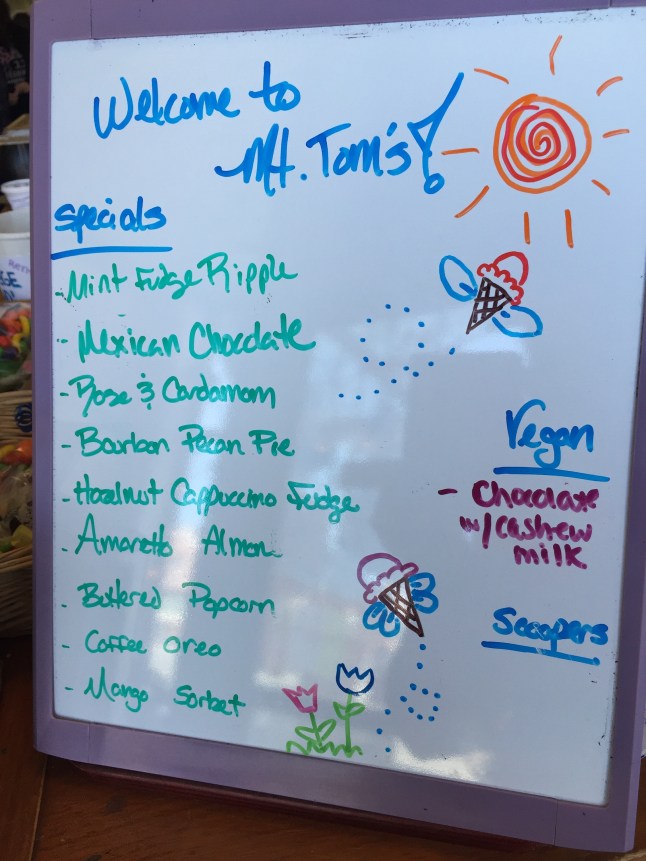 Welcome to
Mt. Tom's!
Specials
- Mint Fudge Ripple
- Mexican Chocolate
- Rose & Cardamom
- Bourbon Pecan Pie
- Hazelnut Cappuccino Fudge
- Amaretto Almon
- Buttered Popcorn
- Coffee Oreo
- Mango Sorbet
Vegan
- Chocolate
w/cashew
milk
Scoopers